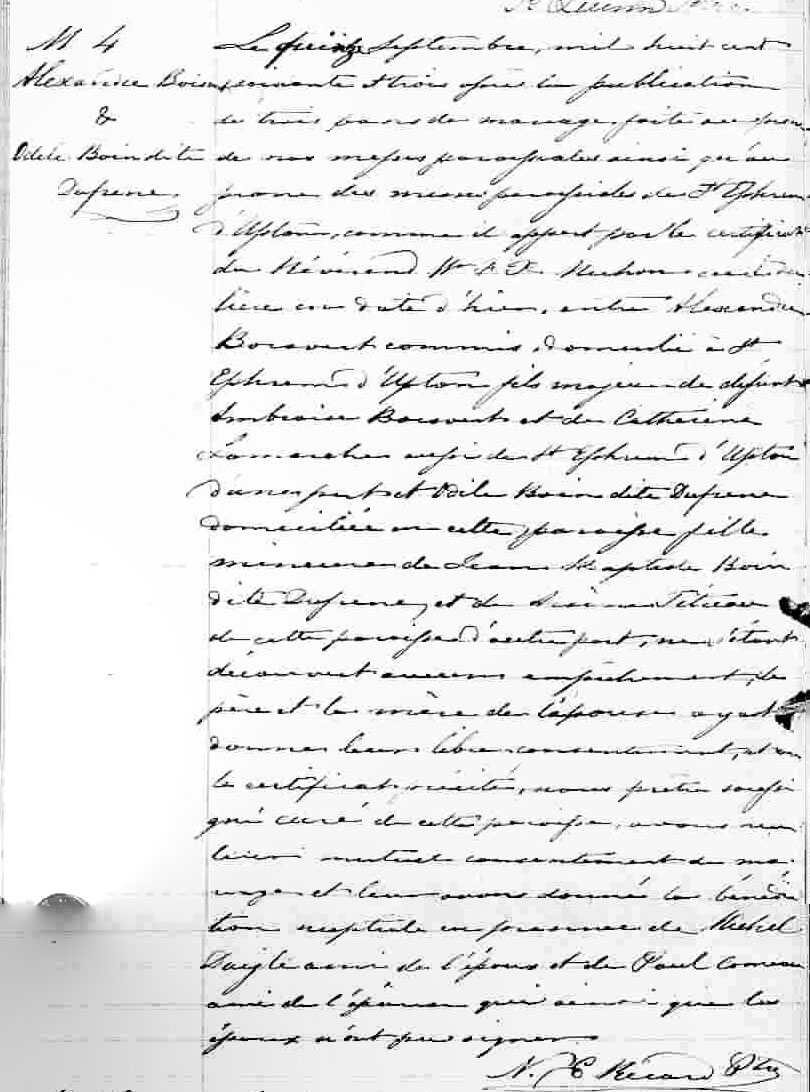 M 4
Alexandre Boisv
&
Odile Boin dite
Dufrene
Le quinze Septembre, mil huit cent
soixante et trois après la publication
de trois bans de mariage faite au prone
de nos messes paroissiales ainsi qu'au
prone des messes paroissiales de St Ephrem
d'Upton, comme il appert par le certificat
du Révérend Mr curé du
lieu en date d'hier, entre Alexandre
Boisvert commis, domicilié à St
Ephrem d'Upton fils majeur de défunt
Ambroise Boisvert et de Catherine
Lamarche aussi de St Ephrem d'Upton
d'une part et Odile Boin dite Dufrene
domiciliée en cette paroisse fille
mineure de Jean Baptiste Boin
dite Dufrene, et de
de cette paroisse d'autre part, ne s'étant
découvert aucun empêchement, le
père et la mère de l'épouse ayant
donné leur libre consentement, et vu
le certificat précité, nous prêtre soussi
gné curé de cette paroisse, avons
leur mutuel consentement de ma
riage et leur avons donné la bénédic
tion nuptiale en présence de Michel
Daigle ami de l'époux et de Paul Comeau
ami de l'épouse qui ainsi que les
époux n'ont pu signer.
N. E. Ricard Ptre